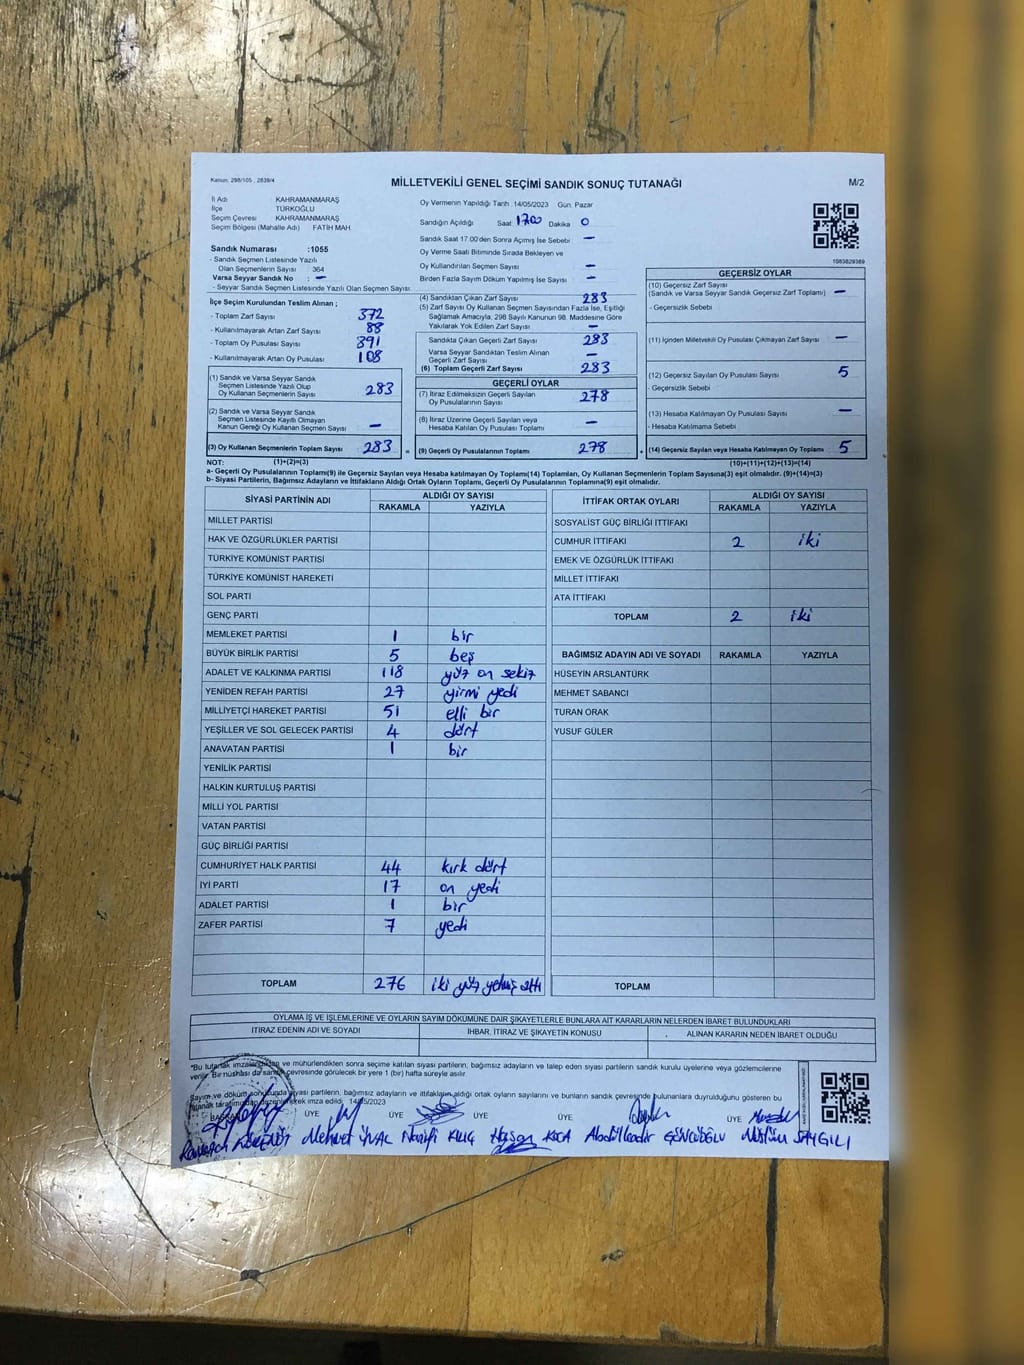 Kanun: 298/105 , 2839/4
MİLLETVEKİLİ GENEL SEÇİMİ SANDIK SONUÇ TUTANAĞI
M/2
İl Adı KAHRAMANMARAŞ
İlçe TÜRKOĞLU
Seçim Çevresi KAHRAMANMARAŞ
Seçim Bölgesi (Mahalle Adı) FATİH MAH.
Sandık Numarası :1055
- Sandık Seçmen Listesinde Yazılı
Olan Seçmenlerin Sayısı : 364
Varsa Seyyar Sandık No : -
- Seyyar Sandık Seçmen Listesinde Yazılı Olan Seçmen Sayısı :
İlçe Seçim Kurulundan Teslim Alınan ;
- Toplam Zarf Sayısı 372
- Kullanılmayarak Artan Zarf Sayısı 88
- Toplam Oy Pusulası Sayısı 391
- Kullanılmayarak Artan Oy Pusulası 108
(1) Sandık ve Varsa Seyyar Sandık
Seçmen Listesinde Yazılı Olup
Oy Kullanan Seçmenlerin Sayısı 283
(2) Sandık ve Varsa Seyyar Sandık
Seçmen Listesinde Kayıtlı Olmayan
Kanun Gereği Oy Kullanan Seçmen Sayısı -
(3) Oy Kullanan Seçmenlerin Toplam Sayısı 283
(1)+(2)=(3)
Oy Vermenin Yapıldığı Tarih :14/05/2023 Gün: Pazar
Sandığın Açıldığı Saat 17.00 Dakika 0
Sandık Saat 17.00'den Sonra Açılmış İse Sebebi -
Oy Verme Saati Bitiminde Sırada Bekleyen ve
Oy Kullandırılan Seçmen Sayısı -
Birden Fazla Sayım Döküm Yapılmış İse Sayısı -
(4) Sandıktan Çıkan Zarf Sayısı 283
(5) Zarf Sayısı Oy Kullanan Seçmen Sayısından Fazla İse, Eşitliği
Sağlamak Amacıyla, 298 Sayılı Kanunun 98. Maddesine Göre
Yakılarak Yok Edilen Zarf Sayısı -
Sandıkta Çıkan Geçerli Zarf Sayısı 283
Varsa Seyyar Sandıktan Teslim Alınan
Geçerli Zarf Sayısı -
(6) Toplam Geçerli Zarf Sayısı 283
GEÇERLİ OYLAR
(7) İtiraz Edilmeksizin Geçerli Sayılan
Oy Pusulalarının Sayısı 278
(8) İtiraz Üzerine Geçerli Sayılan veya
Hesaba Katılan Oy Pusulası Toplamı -
= (9) Geçerli Oy Pusulalarının Toplamı 278
1083829389
GEÇERSİZ OYLAR
(10) Geçersiz Zarf Sayısı
(Sandık ve Varsa Seyyar Sandık Geçersiz Zarf Toplamı) -
- Geçersizlik Sebebi
(11) İçinden Milletvekili Oy Pusulası Çıkmayan Zarf Sayısı -
(12) Geçersiz Sayılan Oy Pusulası Sayısı 5
- Geçersizlik Sebebi
(13) Hesaba Katılmayan Oy Pusulası Sayısı -
- Hesaba Katılmama Sebebi
+ (14) Geçersiz Sayılan veya Hesaba Katılmayan Oy Toplamı 5
(10)+(11)+(12)+(13)=(14)
NOT:
a- Geçerli Oy Pusulalarının Toplamı(9) ile Geçersiz Sayılan veya Hesaba katılmayan Oy Toplamı(14) Toplamları, Oy Kullanan Seçmenlerin Toplam Sayısına(3) eşit olmalıdır. (9)+(14)=(3)
b- Siyasi Partilerin, Bağımsız Adayların ve İttifakların Aldığı Ortak Oyların Toplamı, Geçerli Oy Pusulalarının Toplamına(9) eşit olmalıdır.
SİYASİ PARTİNİN ADI ALDIĞI OY SAYISI
RAKAMLA YAZIYLA
MİLLET PARTİSİ
HAK VE ÖZGÜRLÜKLER PARTİSİ
TÜRKİYE KOMÜNİST PARTİSİ
TÜRKİYE KOMÜNİST HAREKETİ
SOL PARTİ
GENÇ PARTİ
MEMLEKET PARTİSİ 1 bir
BÜYÜK BİRLİK PARTİSİ 5 beş
ADALET VE KALKINMA PARTİSİ 118 yüz on sekiz
YENİDEN REFAH PARTİSİ 27 yirmi yedi
MİLLİYETÇİ HAREKET PARTİSİ 51 elli bir
YEŞİLLER VE SOL GELECEK PARTİSİ 4 dört
ANAVATAN PARTİSİ 1 bir
YENİLİK PARTİSİ
HALKIN KURTULUŞ PARTİSİ
MİLLİ YOL PARTİSİ
VATAN PARTİSİ
GÜÇ BİRLİĞİ PARTİSİ
CUMHURİYET HALK PARTİSİ 44 kırk dört
İYİ PARTİ 17 on yedi
ADALET PARTİSİ 1 bir
ZAFER PARTİSİ 7 yedi
TOPLAM 276 iki yüz yetmiş altı
İTTİFAK ORTAK OYLARI ALDIĞI OY SAYISI
RAKAMLA YAZIYLA
SOSYALİST GÜÇ BİRLİĞİ İTTİFAKI
CUMHUR İTTİFAKI 2 iki
EMEK VE ÖZGÜRLÜK İTTİFAKI
MİLLET İTTİFAKI
ATA İTTİFAKI
TOPLAM 2 iki
BAĞIMSIZ ADAYIN ADI VE SOYADI RAKAMLA YAZIYLA
HÜSEYİN ARSLANTÜRK
MEHMET SABANCI
TURAN ORAK
YUSUF GÜLER
TOPLAM
OYLAMA İŞ VE İŞLEMLERİNE VE OYLARIN SAYIM DÖKÜMÜNE DAİR ŞİKAYETLERLE BUNLARA AİT KARARLARIN NELERDEN İBARET BULUNDUKLARI
İTİRAZ EDENİN ADI VE SOYADI İHBAR, İTİRAZ VE ŞİKAYETİN KONUSU ALINAN KARARIN NEDEN İBARET OLDUĞU
*Bu tutanak imzalandıktan ve mühürlendikten sonra seçime katılan siyasi partilerin, bağımsız adayların ve talep eden siyasi partilerin sandık kurulu üyelerine veya gözlemcilerine
verilir. Bir nüshası da sandık çevresinde görülecek bir yere 1 (bir) hafta süreyle asılır.
Sayım ve döküm sonucunda siyasi partilerin, bağımsız adayların ve ittifakların aldığı ortak oyların sayılarını ve bunların sandık çevresinde bulunanlara duyurulduğunu gösteren bu
tutanak tarafımızdan düzenlenerek imza edildi. 14/05/2023
BAŞKAN ÜYE ÜYE ÜYE ÜYE ÜYE
Mehmet ÜNAL Nazifi KILIÇ Hasan KOCA Abdülkadir GÖNCÜOĞLU SAYGILI